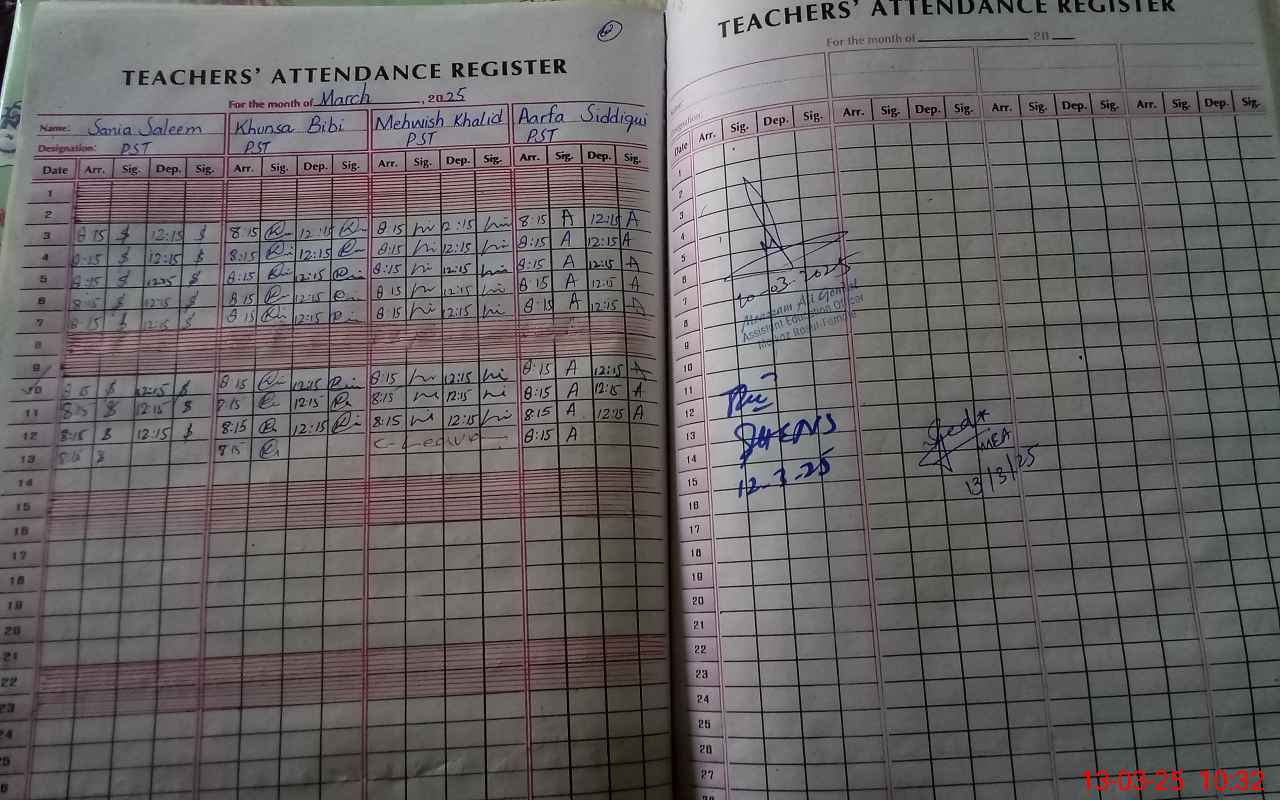 2
TEACHERS' ATTENDANCE REGISTER
For the month of March, 2025
Name: Sania Saleem Khunsa Bibi Mehwish Khalid Aarfa Siddiqui
Designation: PST PST PST PST
Date Arr. Sig. Dep. Sig. Arr. Sig. Dep. Sig. Arr. Sig. Dep. Sig. Arr. Sig. Dep. Sig.
1
2
3 8:15 $ 12:15 $ 8:15 12:15 8:15 12:15 8:15 A 12:15 A
4 8:15 $ 12:15 $ 8:15 12:15 8:15 12:15 8:15 A 12:15 A
5 8:15 $ 12:15 $ 8:15 12:15 8:15 12:15 8:15 A 12:15 A
6 8:15 $ 12:15 $ 8:15 12:15 8:15 12:15 8:15 A 12:15 A
7 8:15 $ 12:15 $ 8:15 12:15 8:15 12:15 8:15 A 12:15 A
8
9
10 8:15 $ 12:15 $ 8:15 12:15 8:15 12:15 8:15 A 12:15 A
11 8:15 $ 12:15 $ 8:15 12:15 8:15 12:15 8:15 A 12:15 A
12 8:15 $ 12:15 $ 8:15 12:15 8:15 12:15 8:15 A 12:15 A
13 8:15 $ 8:15 Leave 8:15 A
14
15
16
17
18
19
20
21
22
23
24
25
TEACHERS' ATTENDANCE REGISTER
For the month of , 20
Date Arr. Sig. Dep. Sig. Arr. Sig. Dep. Sig. Arr. Sig. Dep. Sig. Arr. Sig. Dep. Sig.
1
2
3
4
5
6
7
8
9
10
11
12
13
14
15
16
17
18
19
20
21
22
23
24
25
26
27
28
03-2025
Assistant Education Officer
12-3-25
MEA
13/3/25
13-03-25 10:32